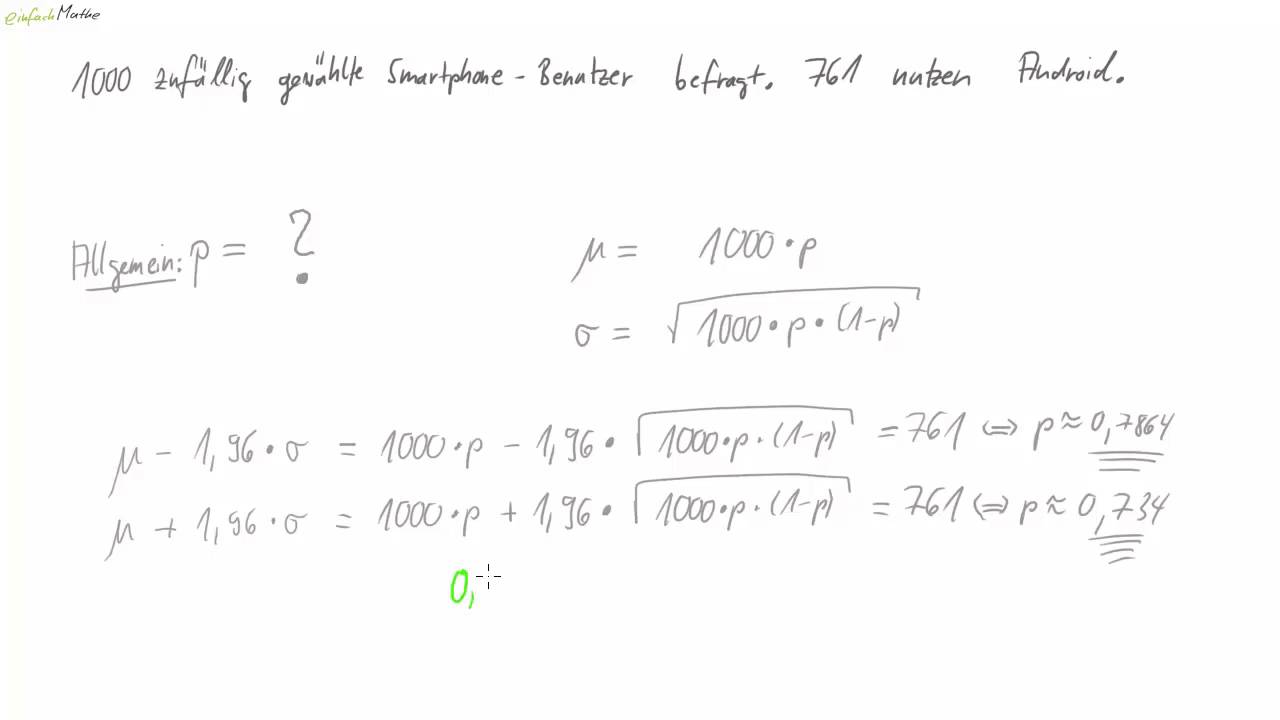 einfachMathe
1000 zufällig gewählte Smartphone-Benutzer befragt. 761 nutzen Android.
Allgemein: p = ?
μ = 1000·p
σ = √1000·p·(1-p)
μ - 1,96·σ = 1000·p - 1,96·√1000·p·(1-p) = 761 ⇔ p ≈ 0,7864
μ + 1,96·σ = 1000·p + 1,96·√1000·p·(1-p) = 761 ⇔ p ≈ 0,734
0,